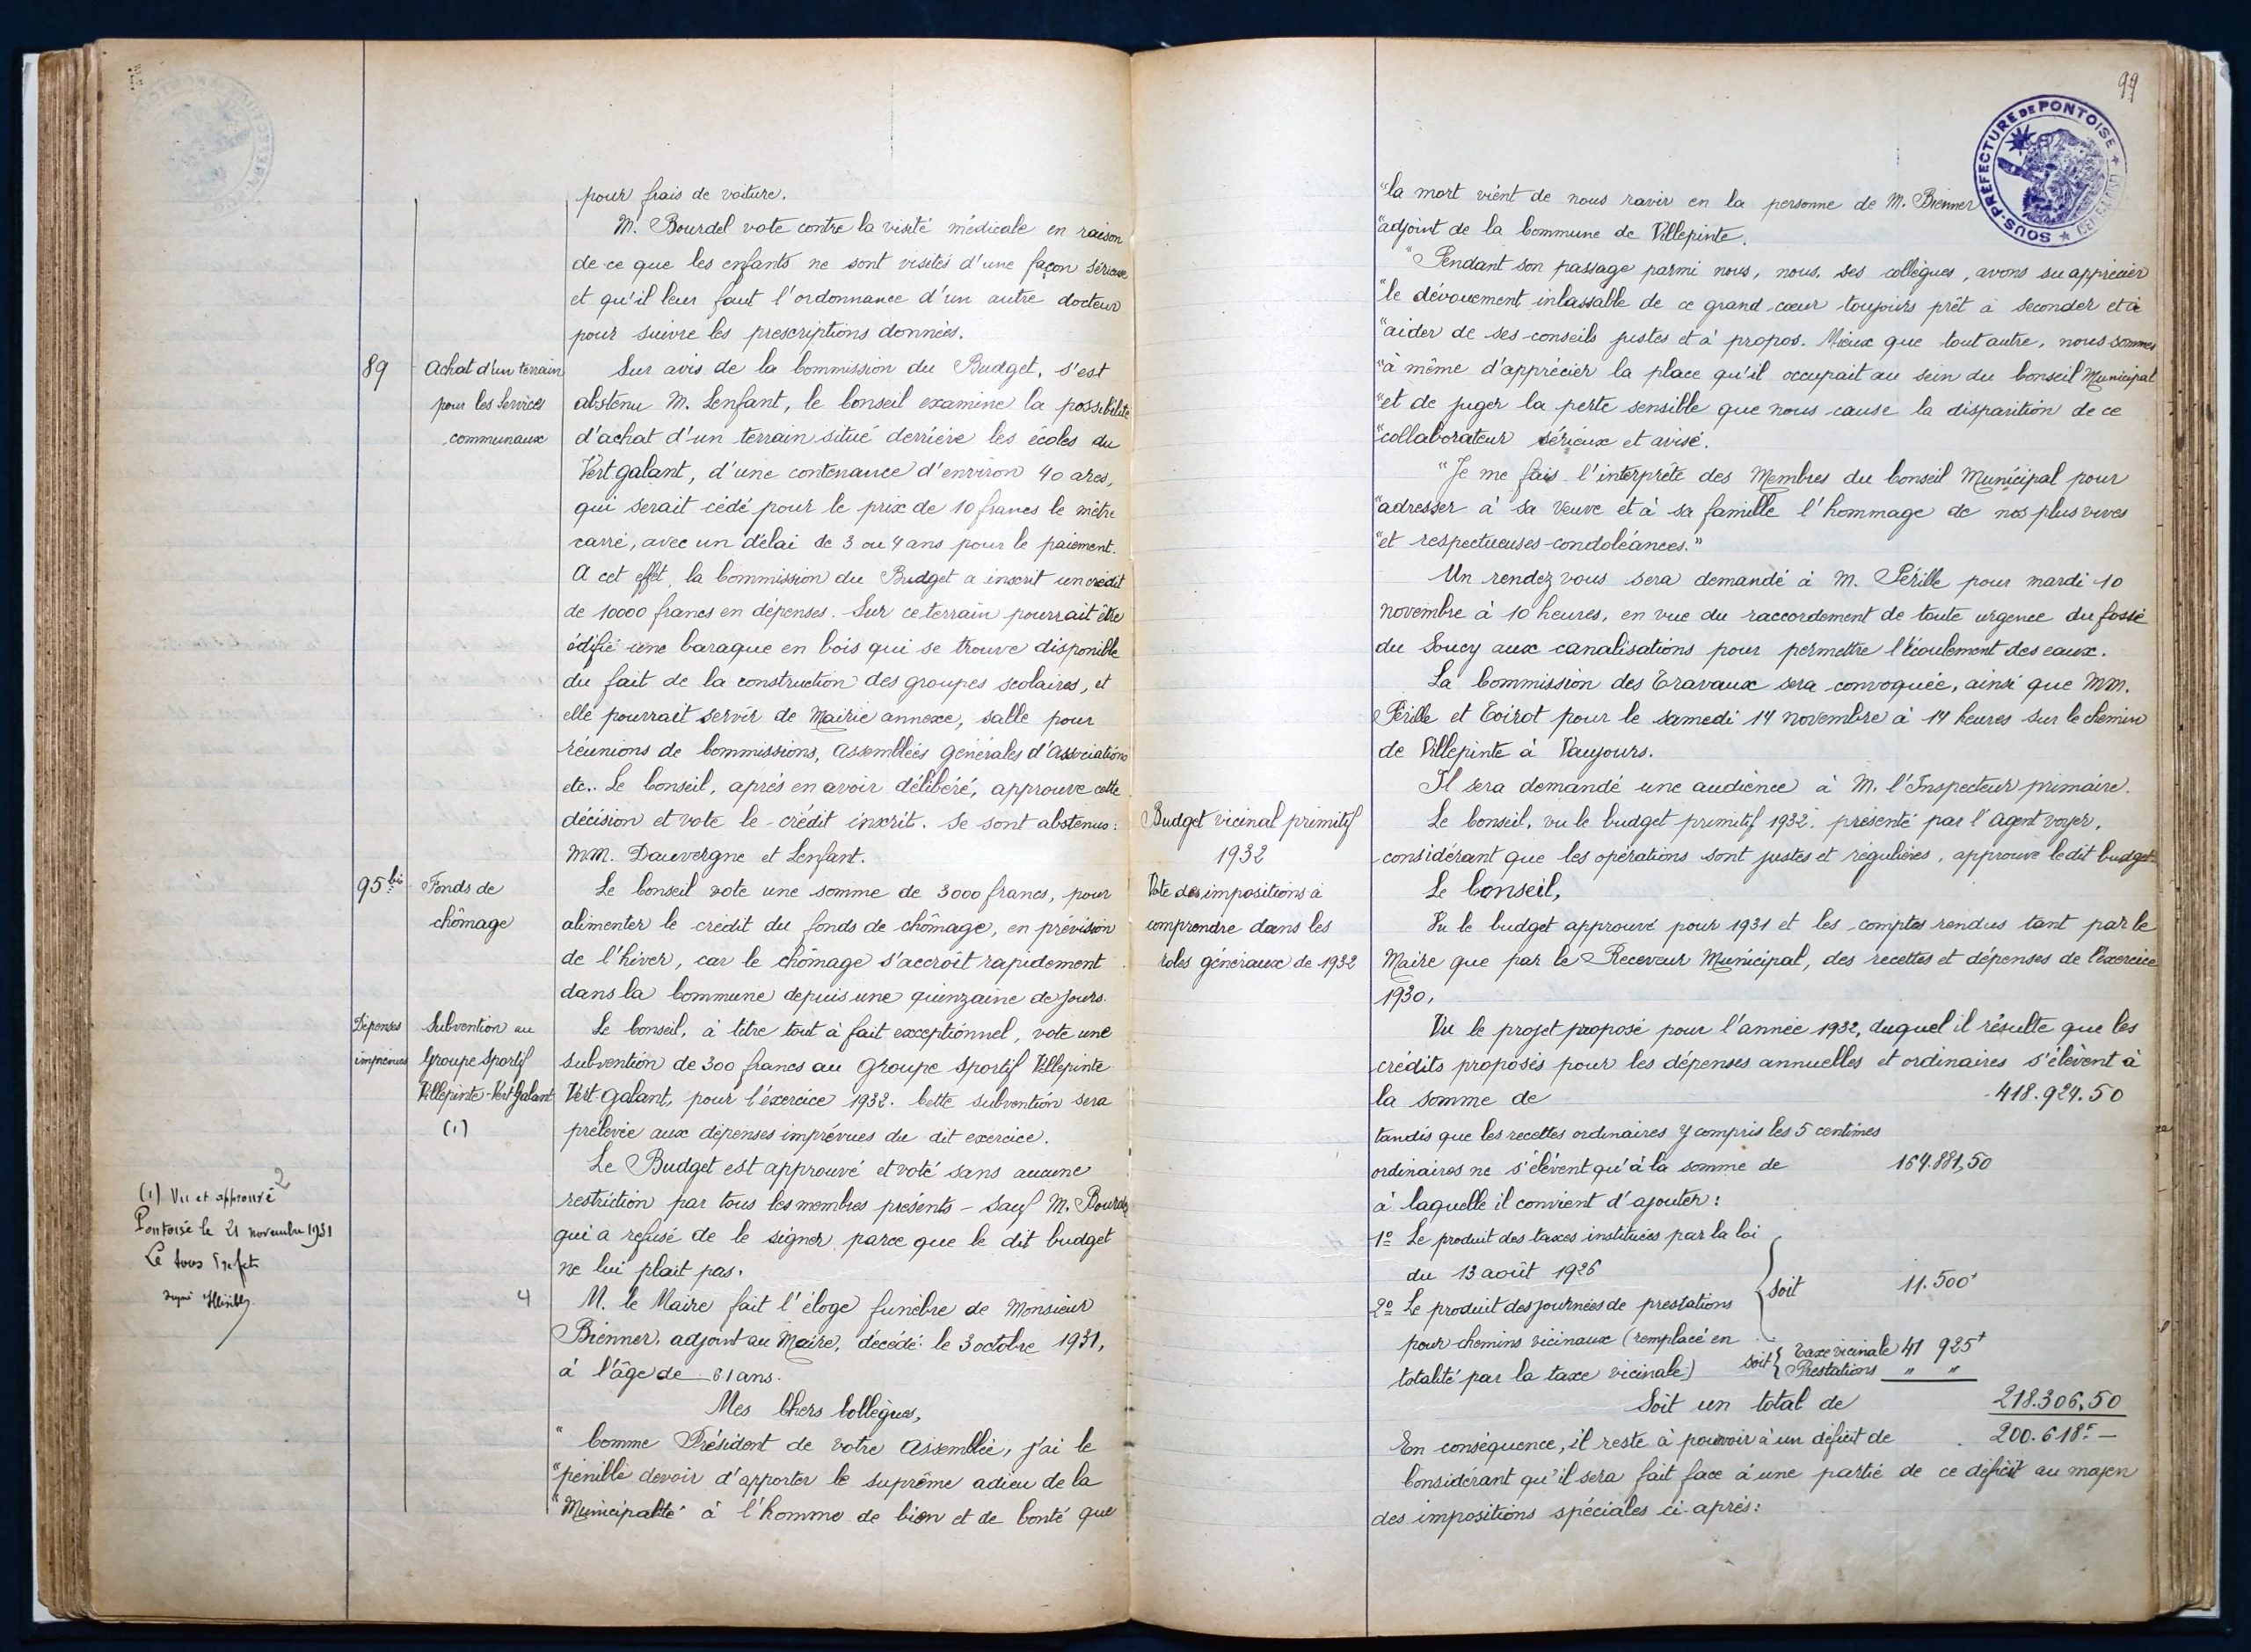 pour frais de voiture.
M. Bourdel vote contre la visite médicale en raison
de ce que les enfants ne sont visités d'une façon sérieuse
et qu'il leur faut l'ordonnance d'un autre docteur
pour suivre les prescriptions données.
89
Achat d'un terrain
pour les Services
communaux
Sur avis de la Commission du Budget, s'est
abstenu M. Lenfant, le Conseil examine la possibilité
d'achat d'un terrain situé derrière les écoles du
Vert galant, d'une contenance d'environ 40 ares,
qui serait cédé pour le prix de 10 francs le mètre
carré, avec un délai de 3 ou 4 ans pour le paiement.
A cet effet, la Commission du Budget a inscrit un crédit
de 10000 francs en dépenses. Sur ce terrain pourrait être
édifié une baraque en bois qui se trouve disponible
du fait de la construction des groupes scolaires, et
elle pourrait servir de Mairie annexe, salle pour
réunions de Commissions, Assemblées Générales d'Associations
etc.. Le Conseil, après en avoir délibéré, approuve cette
décision et vote le crédit inscrit. Se sont abstenus :
MM. Dauvergne et Lenfant.
95 bis
Fonds de
chômage
Le Conseil vote une somme de 3000 francs, pour
alimenter le crédit du fonds de chômage, en prévision
de l'hiver, car le chômage s'accroît rapidement
dans la Commune depuis une quinzaine de jours.
Dépenses
imprévues
Subvention au
Groupe Sportif
Villepinte-Vert Galant
(1)
Le Conseil, à titre tout à fait exceptionnel, vote une
subvention de 300 francs au Groupe Sportif Villepinte
Vert-Galant, pour l'exercice 1932. Cette subvention sera
prélevée aux dépenses imprévues du dit exercice.
Le Budget est approuvé et voté sans aucune
restriction par tous les membres présents - sauf M. Bourdel
qui a refusé de le signer parce que le dit budget
ne lui plait pas.
2
(1) Vu et approuvé
Pontoise le 21 novembre 1931
Le Sous Préfet
signé Illisible
4
M. le Maire fait l'éloge funèbre de Monsieur
Bienner, adjoint au Maire, décédé le 3 octobre 1931,
à l'âge de 61 ans.
Mes Chers Collègues,
" Comme Président de votre Assemblée, j'ai le
" pénible devoir d'apporter le suprême adieu de la
" Municipalité à l'homme de bien et de bonté que
99
SOUS-PRÉFECTURE DE PONTOISE
"la mort vient de nous ravir en la personne de M. Bienner
"adjoint de la Commune de Villepinte.
" Pendant son passage parmi nous, nous, ses collègues, avons su apprécier
"le dévouement inlassable de ce grand cœur toujours prêt à seconder et à
"aider de ses conseils justes et à propos. Mieux que tout autre, nous sommes
"à même d'apprécier la place qu'il occupait au sein du Conseil Municipal
"et de juger la perte sensible que nous cause la disparition de ce
"collaborateur sérieux et avisé.
"Je me fais l'interprète des Membres du Conseil Municipal pour
"adresser à sa veuve et à sa famille l'hommage de nos plus vives
"et respectueuses condoléances."
Un rendez vous sera demandé à M. Pérille pour mardi 10
novembre à 10 heures, en vue du raccordement de toute urgence du fossé
du Soucy aux canalisations pour permettre l'écoulement des eaux.
La Commission des Travaux sera convoquée, ainsi que MM.
Pérille et Toirot pour le samedi 14 novembre à 14 heures sur le chemin
de Villepinte à Vaujours.
Il sera demandé une audience à M. l'Inspecteur primaire.
Budget vicinal primitif
1932
Le Conseil, vu le budget primitif 1932, présenté par l'Agent voyer,
considérant que les opérations sont justes et régulières, approuve le dit budget
Vote des impositions à
comprendre dans les
roles généraux de 1932
Le Conseil,
Vu le budget approuvé pour 1931 et les comptes rendus tant par le
Maire que par le Receveur Municipal, des recettes et dépenses de l'exercice
1930,
Vu le projet proposé pour l'année 1932, duquel il résulte que les
crédits proposés pour les dépenses annuelles et ordinaires s'élèvent à
la somme de 418.924.50
tandis que les recettes ordinaires y compris les 5 centimes
ordinaires ne s'élèvent qu'à la somme de 164.881,50
à laquelle il convient d'ajouter :
1º Le produit des taxes instituées par la loi
du 13 août 1926
soit 11.500f
2º Le produit des journées de prestations
pour chemins vicinaux (remplacé en
totalité par la taxe vicinale)
soit { Taxe vicinale 41 925f
Prestations " "
Soit un total de 218.306,50
En conséquence, il reste à pourvoir à un déficit de 200.618f -
Considérant qu'il sera fait face à une partie de ce déficit au moyen
des impositions spéciales ci-après :